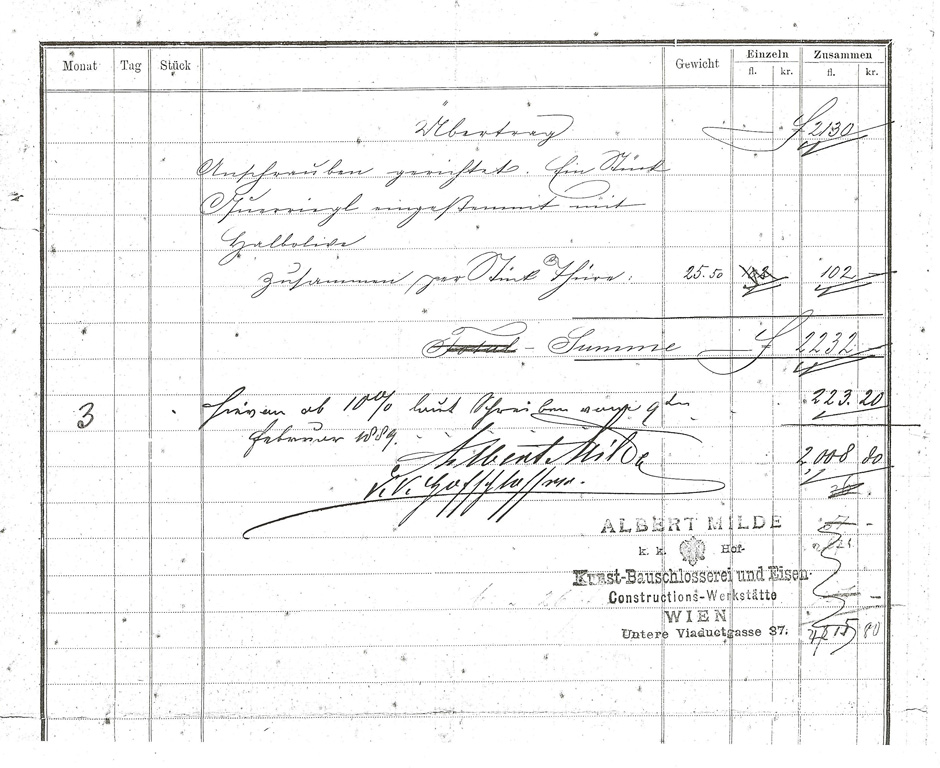 Monat Tag Stück Gewicht Einzeln Zusammen
fl. kr. fl. kr.
Übertrag f 2130
Anschrauben gerichtet. Ein Stück
eingestemmt mit
Halbolive
zusammen per Stück Thüre: 25.50 102 —
Total - Summe f 2232
3 hievon ab 10% laut Schreiben vom 9ten 223. 20
Februar 1889.
Albert Milde 2008 80
k. k. Hofschlosser.
ALBERT MILDE
k. k. Hof-
Kunst-Bauschlosserei und Eisen-
Constructions-Werkstätte
WIEN
Untere Viaductgasse 37.